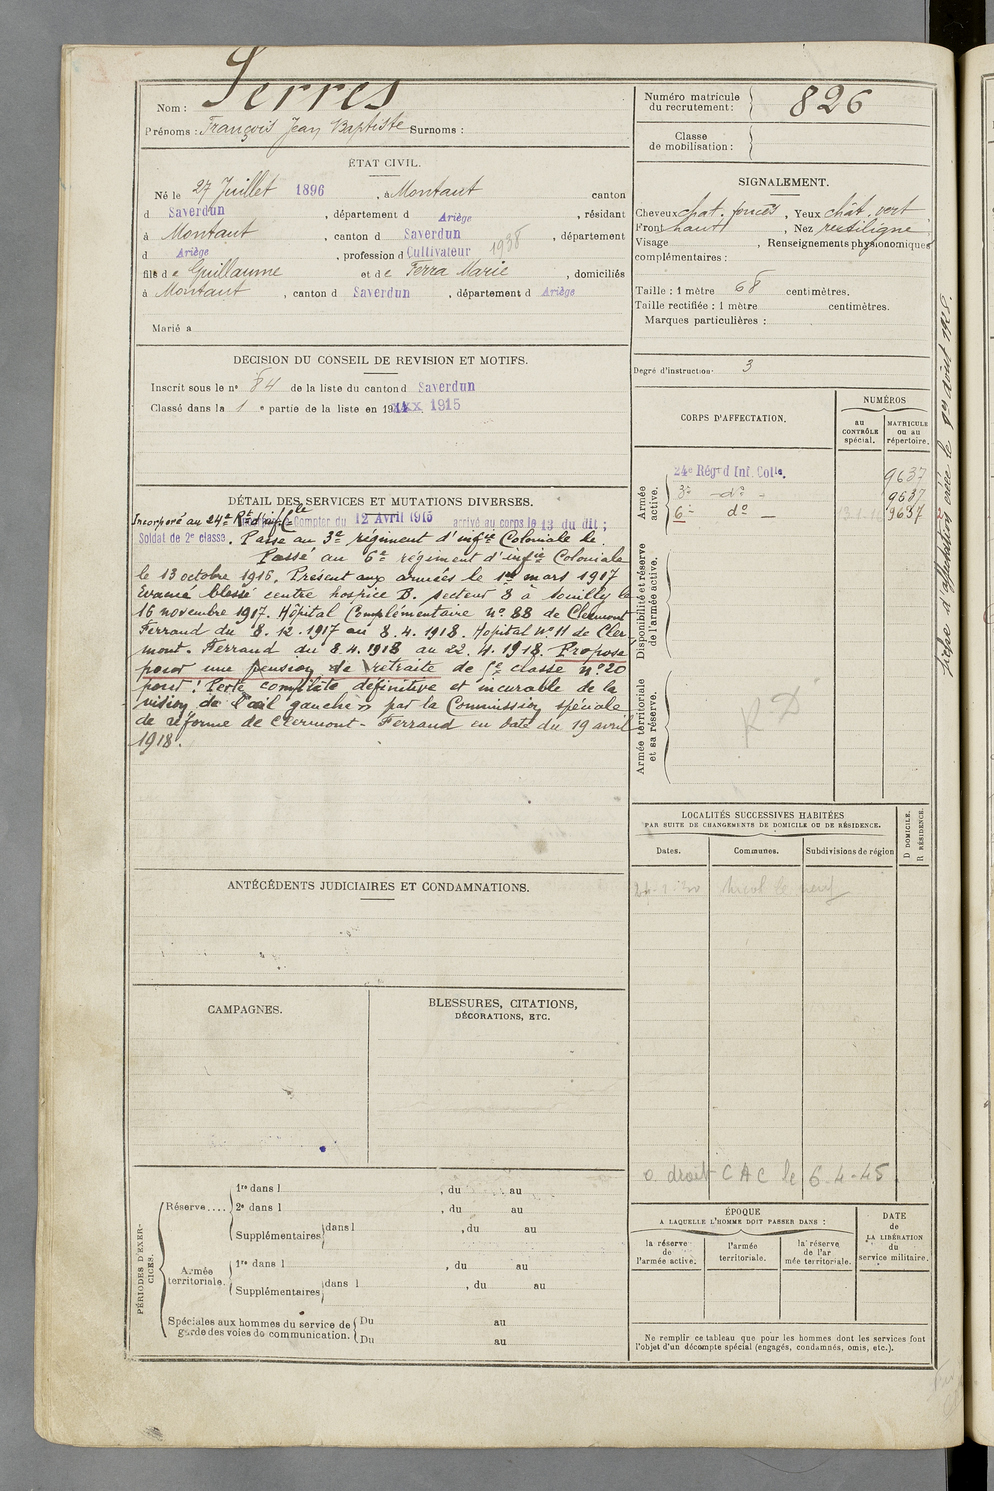 Serres
Nom :
Prénoms : François Jean Baptiste Surnoms :
ÉTAT CIVIL.
Né le 27 Juillet 1896, à Montaut canton
d Saverdun, département d Ariège, résidant
à Montaut, canton d Saverdun, département
d Ariège, profession d Cultivateur 1938
fils de Guillaume et de Ferra Marie, domiciliés
à Montaut, canton d Saverdun, département d Ariège
Marié à
DECISION DU CONSEIL DE REVISION ET MOTIFS.
Inscrit sous le n° 84 de la liste du canton d Saverdun
Classé dans la 1 e partie de la liste en 1915
DÉTAIL DES SERVICES ET MUTATIONS DIVERSES.
Incorporé au 24e Rt d'inf Cle à Compter du 12 Avril 1915 arrivé au corps le 13 du dit ;
Soldat de 2e classe. Passé au 3e régiment d'infie Coloniale le.
Passé au 6e régiment d'infie Coloniale
le 13 octobre 1916. Présent aux armées le 1er mars 1917
Evacué blessé centre hospice B. secteur 8 à Souilly le
16 novembre 1917. Hôpital Complémentaire n° 88 de Clermont
Ferrand du 8.12.1917 au 8.4.1918. Hopital N° 11 de Cler-
mont-Ferrand du 8.4.1918 au 22.4.1918. Proposé
pour une pension de retraite de 5e classe n° 20
pour : Perte complète définitive et incurable de la
vision de l'œil gauche » par la Commission spéciale
de réforme de Clermont-Ferrand en date du 19 avril
1918.
ANTÉCÉDENTS JUDICIAIRES ET CONDAMNATIONS.
CAMPAGNES.
BLESSURES, CITATIONS,
DÉCORATIONS, ETC.
PÉRIODES D'EXER-
CICES.
Réserve....
1re dans l , du au
2e dans l , du au
Supplémentaires dans l , du au
Armée
territoriale.
1re dans l , du au
Supplémentaires dans l , du au
Spéciales aux hommes du service de
garde des voies de communication.
Du au
Du au
Numéro matricule
du recrutement : 826
Classe
de mobilisation :
SIGNALEMENT.
Cheveux chat. foncés, Yeux chât. vert
Front haut, Nez rectiligne
Visage , Renseignements physionomiques
complémentaires :
Taille : 1 mètre 68 centimètres.
Taille rectifiée : 1 mètre centimètres.
Marques particulières :
Degré d'instruction : 3
CORPS D'AFFECTATION.
NUMÉROS
au
CONTRÔLE
spécial.
MATRICULE
ou au
répertoire.
Armée
active.
24e Régt d'Inf. Colle. 9637
3e - do - 9637
6e do - 13.1.16 9637
Disponibilité et réserve
de l'armée active.
Armée territoriale
et sa réserve.
R D
LOCALITÉS SUCCESSIVES HABITÉES
PAR SUITE DE CHANGEMENTS DE DOMICILE OU DE RÉSIDENCE.
Dates.
Communes.
Subdivisions de région
D DOMICILE.
R RÉSIDENCE.
o. droit CAC le 6-4-45
ÉPOQUE
A LAQUELLE L'HOMME DOIT PASSER DANS :
DATE
de
LA LIBÉRATION
du
service militaire.
la réserve
de
l'armée active.
l'armée
territoriale.
la réserve
de l'ar
mée territoriale.
Ne remplir ce tableau que pour les hommes dont les services font
l'objet d'un décompte spécial (engagés, condamnés, omis, etc.).
fiche d'affectation créée le 1er août 1925.